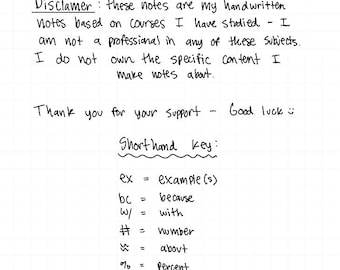 Disclamer: these notes are my handwritten
notes based on courses I have studied - I
am not a professional in any of these subjects.
I do not own the specific content I
make notes about.
Thank you for your support - Good luck ☺
Shorthand key:
ex = example(s)
bc = because
w/ = with
# = number
≈ = about
% = percent